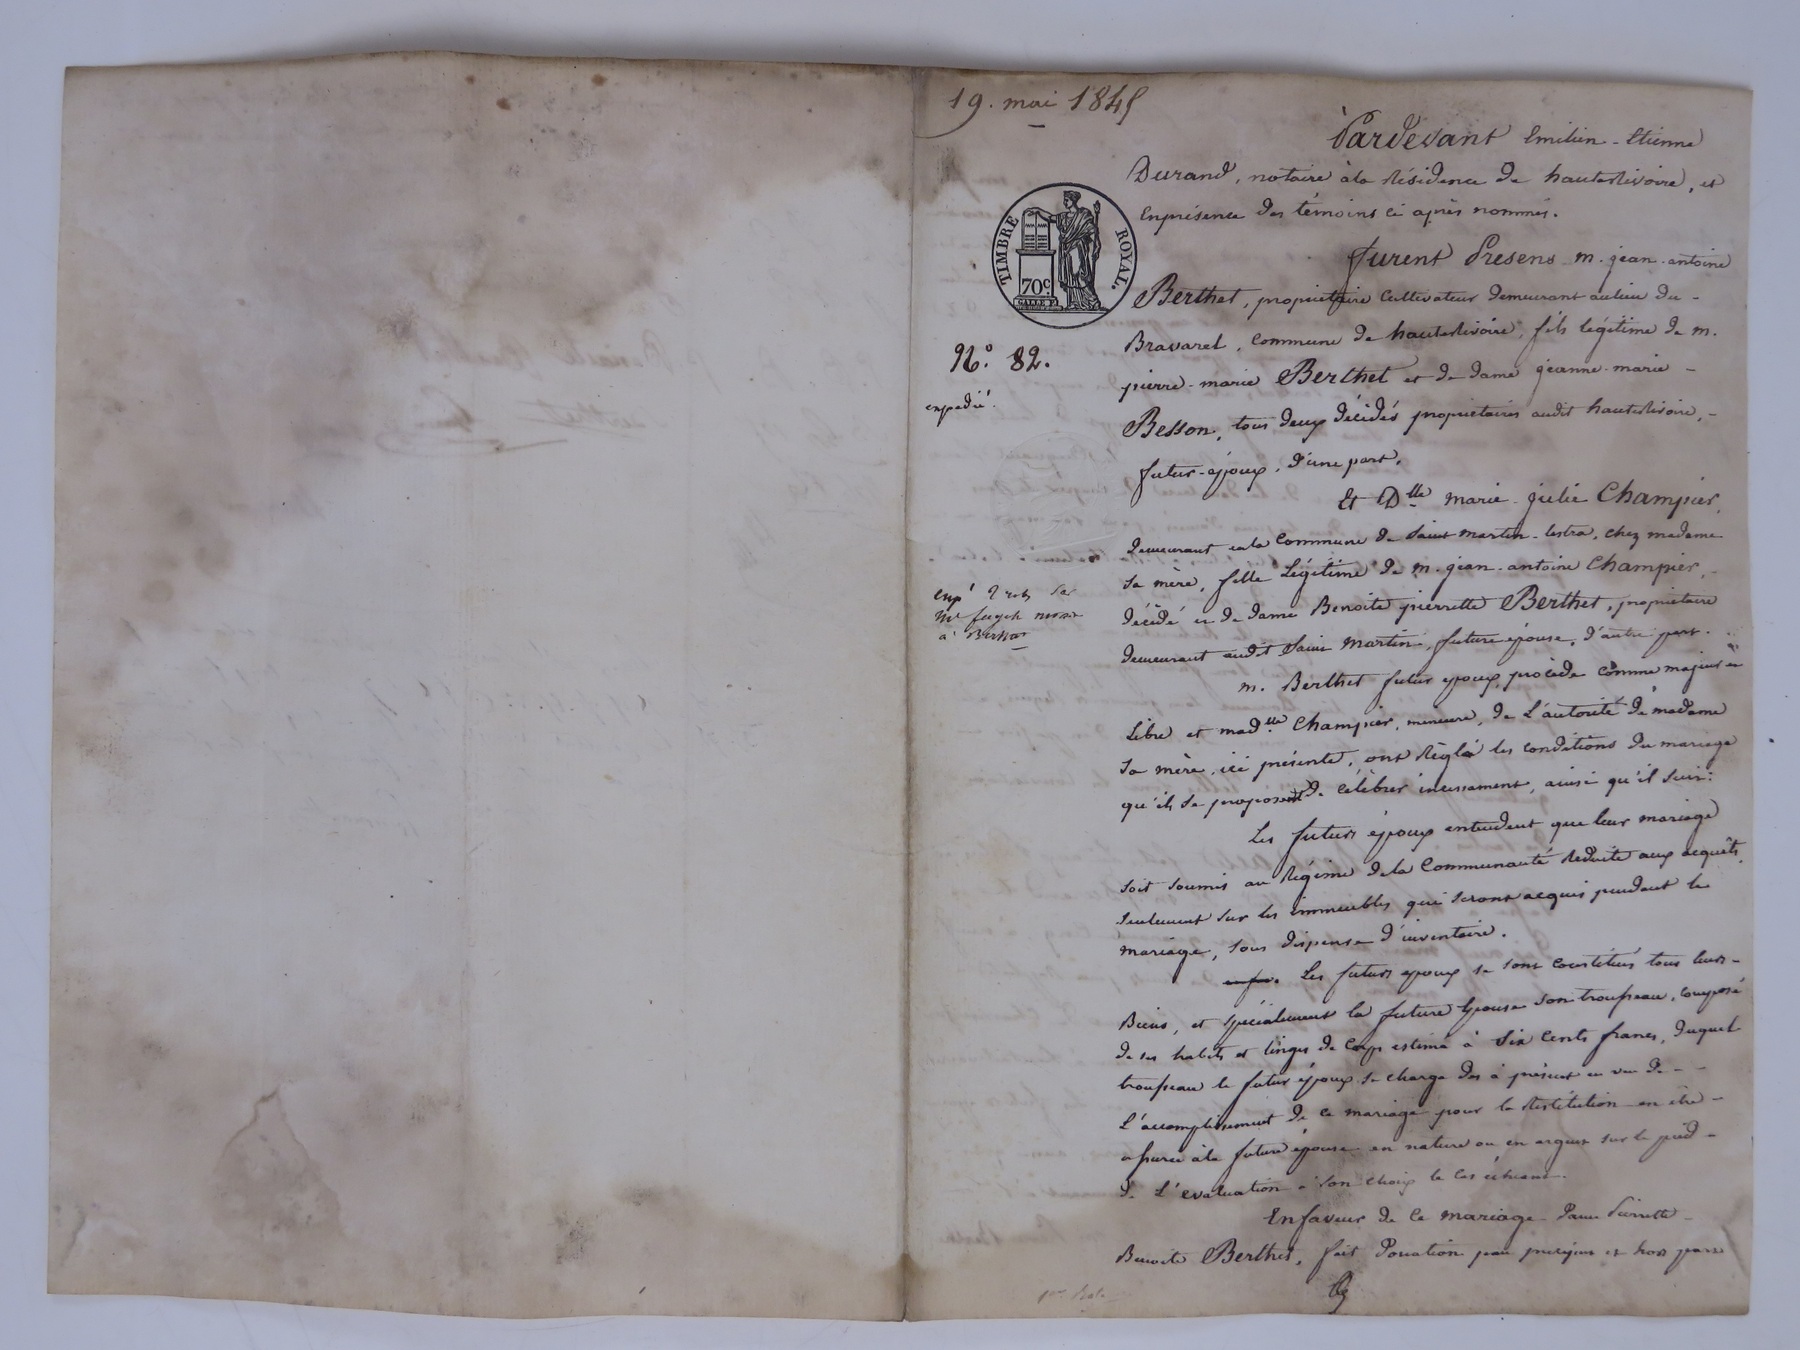 19. mai 1845
Pardevant Emilien-Etienne
Durand, notaire à la Résidence de hauterivoire, et
En présence des témoins ci après nommés.
furent Présens m. jean-antoine
Berthet, propriétaire Cultivateur demeurant au lieu du -
Bravaret, Commune de hauterivoire, fils légitime de m.
pierre-marie Berthet et de dame jeanne-marie -
Besson, tous deux décédés propriétaires audit hauterivoire, -
futur-époux, d'une part,
Et Dlle marie-julie Champier,
demeurant en la Commune de Saint martin-lestra, chez madame
sa mère, fille Légitime de m. jean-antoine Champier, -
décédé et de dame Benoite pierrette Berthet, propriétaire
demeurant audit Saint Martin, future épouse, d'autre part.
m. Berthet futur époux, procède comme majeur et
Libre et madlle Champier, mineure, de L'autorité de madame
sa mère, ici présente, ont Réglé les conditions du mariage
qu'ils se proposent de célébrer incessament, ainsi qu'il suit:
Les futurs époux entendent que leur mariage
soit soumis au Régime de la Communauté Réduite aux acquêts,
seulement sur les immeubles qui seront acquis pendant le
mariage, sous dispense d'inventaire.
Les futurs époux se sont constitués tous leurs -
Biens, et spécialement la future Epouse son trousseau, composé
de ses habits et linges de corps estimé à Six Cents francs, duquel
trousseau le futur époux se charge dès à présent en vue de - -
L'accomplissement de ce mariage pour la Restitution en être -
assurée à la future épouse en nature ou en argent sur le pied -
de L'évaluation à son choix le cas échéant.
En faveur de Ce mariage Dame Pierrette -
Benoite Berthet, fait Donation par préciput et hors part
TIMBRE ROYAL.
70c.
No. 82.
expédié.